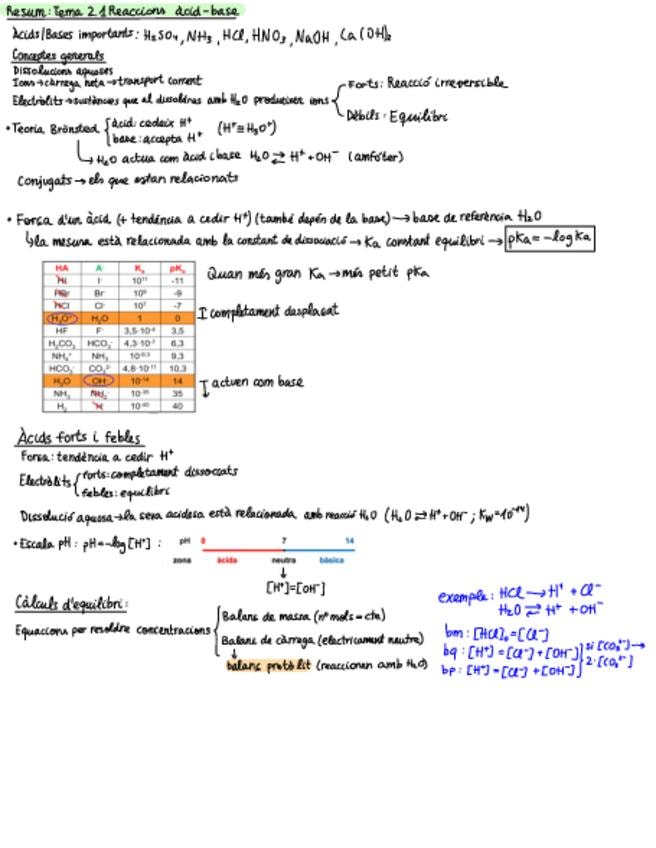 Resum: Tema 2.1 Reaccions àcid-base
Àcids/Bases importants: H₂SO₄, NH₃, HCl, HNO₃, NaOH, Ca(OH)₂
Conceptes generals
Dissolucions aquoses
Ions→càrrega neta→transport corrent
Electròlits→substàncies que al dissoldres amb H₂O produeixen ions
Forts: Reacció irreversible
Dèbils: Equilibri
• Teoria Brönsted
àcid: cedeix H⁺
base: accepta H⁺
(H⁺≡H₃O⁺)
↳H₂O actua com àcid i base H₂O⇄H⁺+OH⁻ (amfòter)
Conjugats→els que estan relacionats
• Força d'un àcid (+ tendència a cedir H⁺) (també depèn de la base)→base de referència H₂O
↳la mesura està relacionada amb la constant de dissociació→Ka constant equilibri→pKa=-logKa
HA A⁻ Kₐ pKₐ
HI I⁻ 10¹¹ -11
HBr Br⁻ 10⁹ -9
HCl Cl⁻ 10⁷ -7
H₃O⁺ H₂O 1 0
HF F⁻ 3,5·10⁻⁴ 3,5
H₂CO₃ HCO₃⁻ 4,3·10⁻⁷ 6,3
NH₄⁺ NH₃ 10⁻⁹·³ 9,3
HCO₃⁻ CO₃²⁻ 4,8·10⁻¹¹ 10,3
H₂O OH⁻ 10⁻¹⁴ 14
NH₃ NH₂⁻ 10⁻³⁵ 35
H₂ H⁻ 10⁻⁴⁰ 40
Quan més gran Ka→més petit pKa
completament desplaçat
actuen com base
Àcids forts i febles
Força: tendència a cedir H⁺
Electròlits
forts: completament dissociats
febles: equilibri
Dissolució aquosa→la seva acidesa està relacionada amb reacció H₂O (H₂O⇄H⁺+OH⁻; Kw=10⁻¹⁴)
• Escala pH: pH=-log[H⁺]:
pH 0 7 14
zona àcida neutra bàsica
[H⁺]=[OH⁻]
Càlculs d'equilibri:
Equacions per resoldre concentracions
Balanç de massa (nº mols=cte)
Balanç de càrrega (elèctricament neutre)
balanç protòlit (reaccionen amb H₂O)
exemple: HCl→H⁺+Cl⁻
H₂O⇄H⁺+OH⁻
bm: [HCl]₀=[Cl⁻]
bq: [H⁺]=[Cl⁻]+[OH⁻]
bp: [H⁺]=[Cl⁻]+[OH⁻]
si [CO₃²⁻]→
2·[CO₃²⁻]